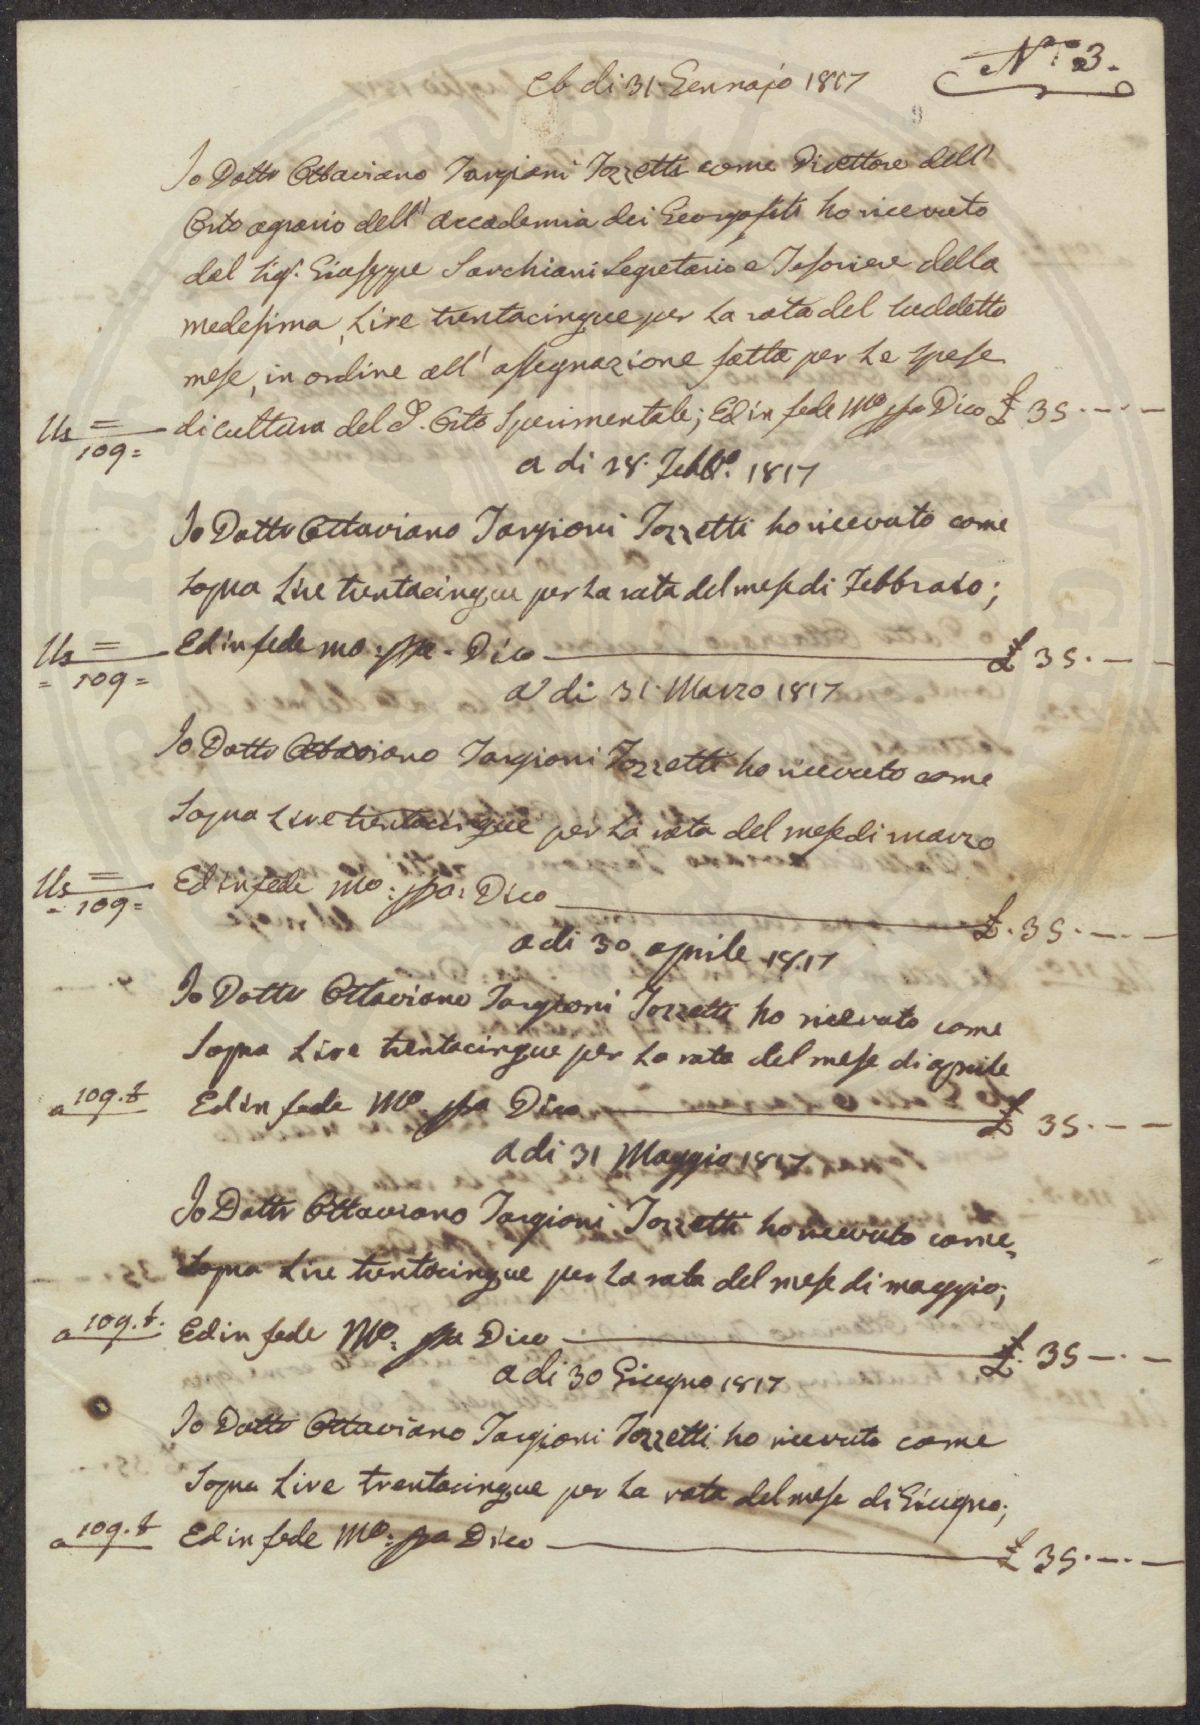 N.° 3.
Ab di 31. Gennajo 1817
9
Io Dottr Ottaviano Targioni Tozzetti come Direttore dell'
Orto agrario dell' Accademia dei Georgofili ho ricevuto
dal Sigr. Giuseppe Sarchiani Segretario e Tesoriere della
medesima, Lire trentacinque per la rata del suddetto
mese, in ordine all' assegnazione fatta per le spese
di cultura del d. Orto Sperimentale; Ed in fede Mo ppa Dico £ 35.——
Us =
109=
a di 28. Febb.o 1817
Io Dottr Ottaviano Targioni Tozzetti ho ricevuto come
sopra Lire trentacinque per la rata del mese di Febbraio;
Us = Ed in fede mo: ppa. Dico £ 35.——
= 109 =
a di 31. Marzo 1817
Io Dottr Ottaviano Targioni Tozzetti ho ricevuto come
Sopra Lire trentacinque per la rata del mese di marzo
Us = Ed in fede Mo: ppa: Dico £. 35.——
109=
a di 30 aprile 1817
Io Dottr Ottaviano Targioni Tozzetti ho ricevuto come
Sopra Lire trentacinque per la rata del mese di aprile
a 109.t Ed in fede Mo ppa Dico £ 35.——
a di 31 Maggio 1817
Io Dottr Ottaviano Targioni Tozzetti ho ricevuto come
Sopra Lire trentacinque per la rata del mese di maggio;
a 109.t. Ed in fede Mo: ppa Dico £. 35——
a di 30 Giugno 1817
Io Dottr Ottaviano Targioni Tozzetti ho ricevuto come
Sopra Lire trentacinque per la rata del mese di Giugno;
a 109.t Ed in fede Mo: ppa Dico £ 35.——